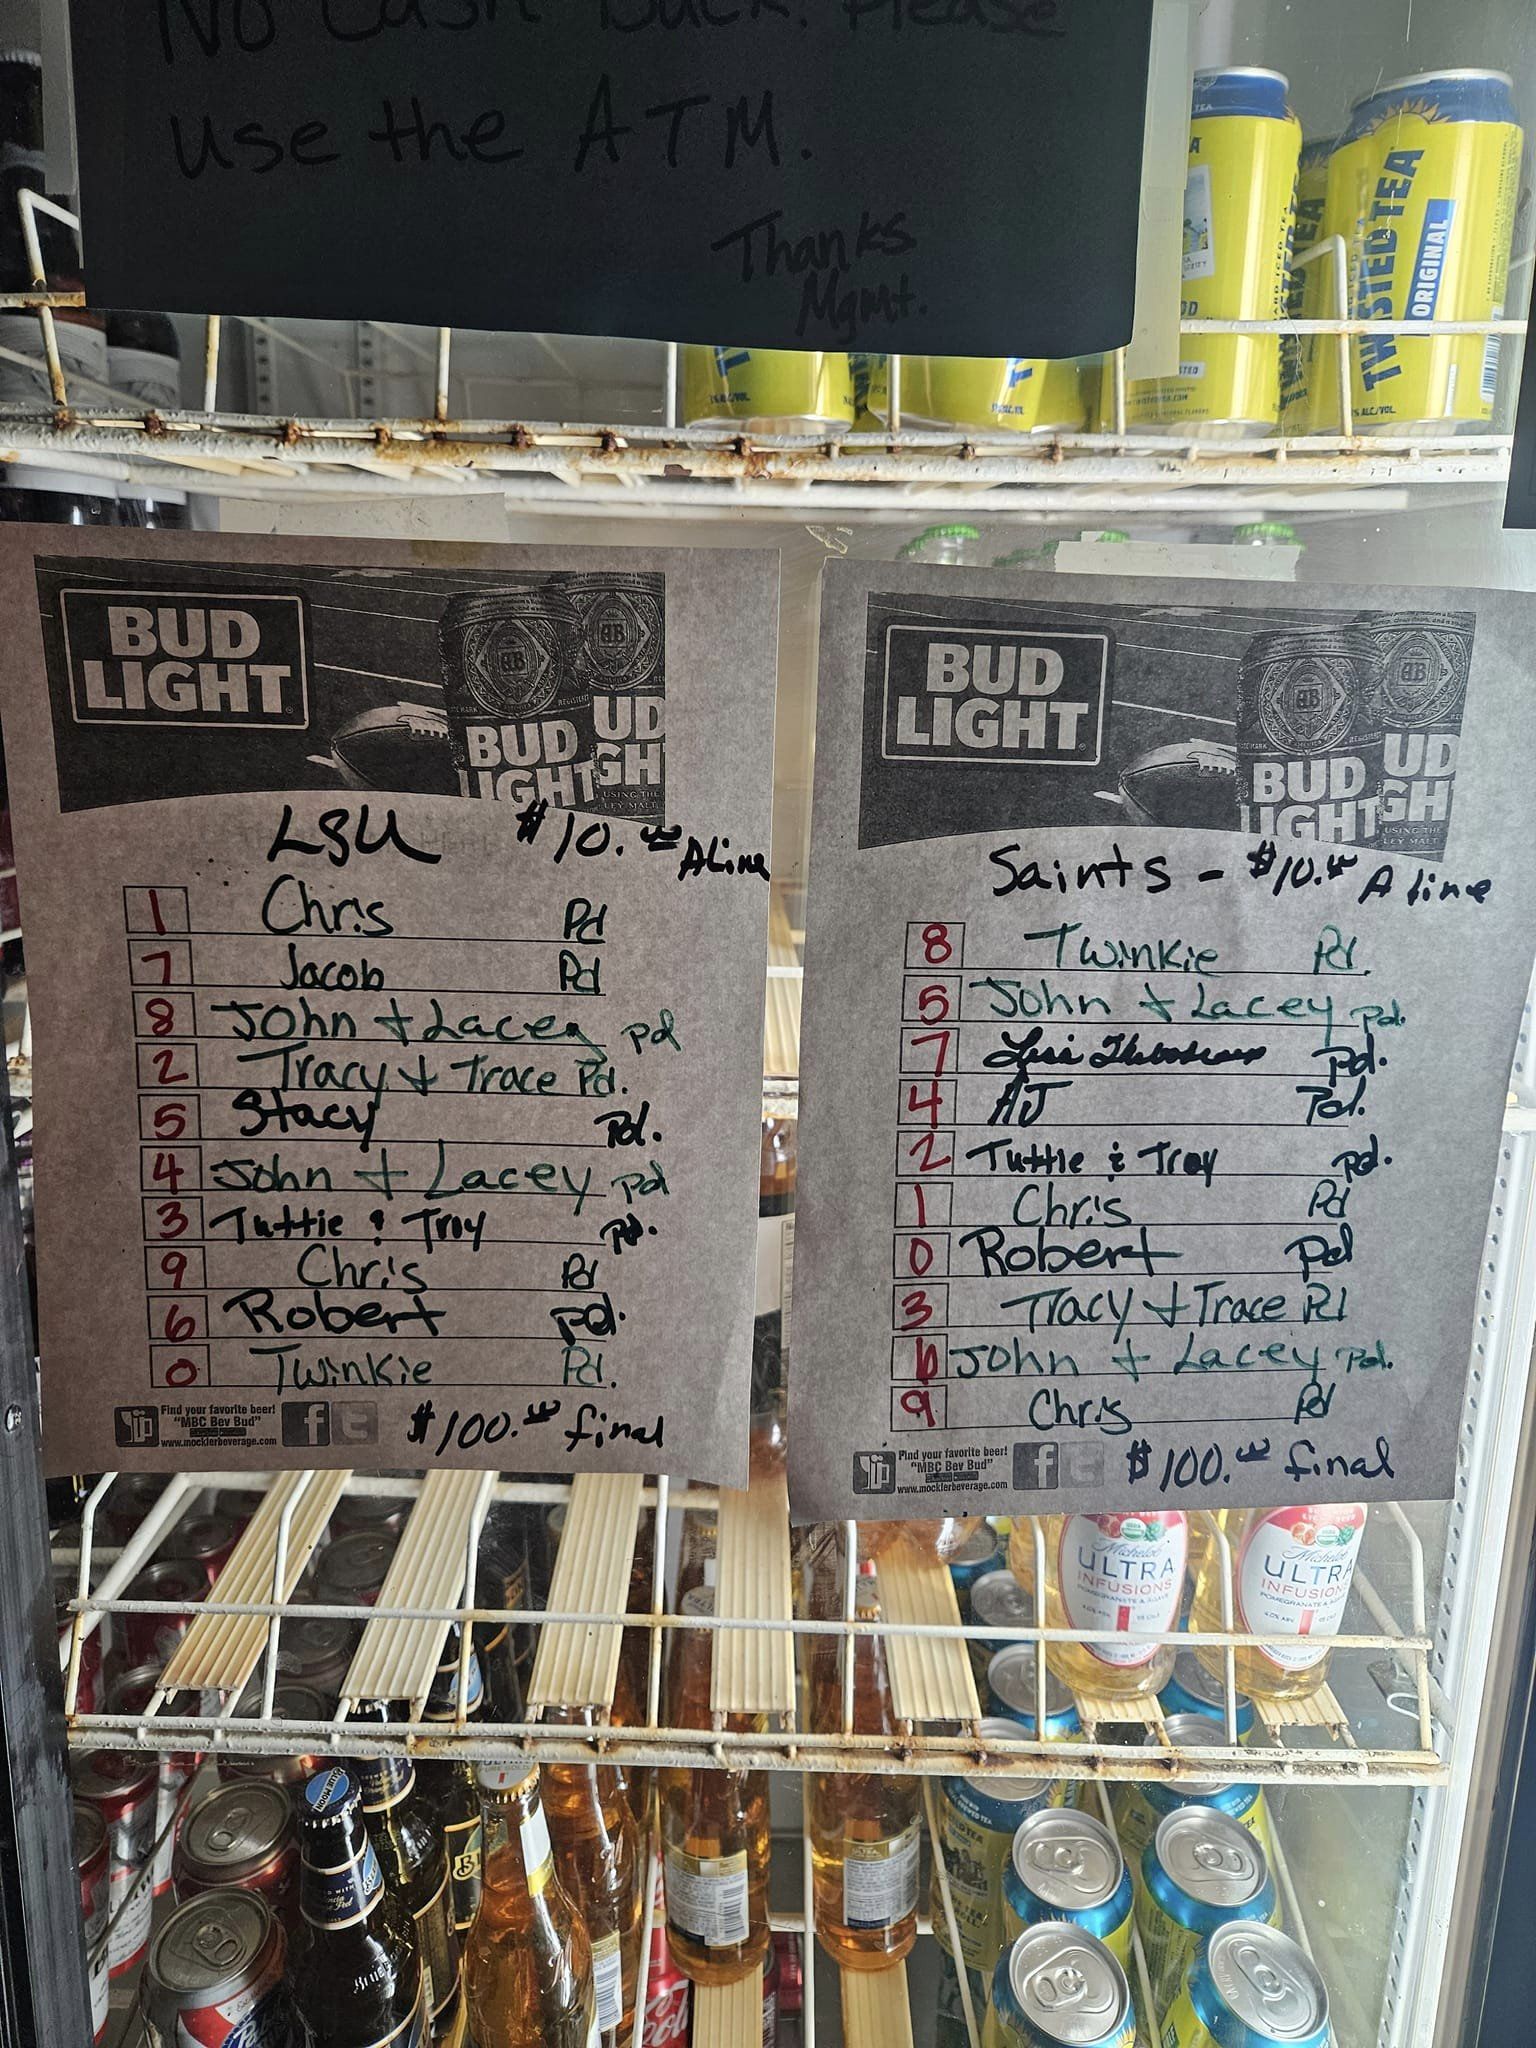 No Cash Back. Please
use the ATM.
Thanks
Mgmt.
TWISTED TEA
ORIGINAL
BUD
LIGHT
BUD
LIGHT
LSU $10.00 A Line
1 Chris Pd
7 Jacob Pd
8 John + Lacey pd
2 Tracy + Trace Pd.
5 Stacy Pd.
4 John + Lacey pd
3 Tuttie & Troy pd.
9 Chris Pd
6 Robert pd.
0 Twinkie Pd.
Find your favorite beer!
"MBC Bev Bud"
www.mocklerbeverage.com
$100.00 final
BUD
LIGHT
BUD
LIGHT
Saints - $10.00 A line
8 Twinkie Pd.
5 John + Lacey Pd.
7 Pd.
4 AJ Pd.
2 Tuttie & Troy pd.
1 Chris Pd
0 Robert Pd
3 Tracy + Trace Pd
6 John + Lacey Pd.
9 Chris Pd
Find your favorite beer!
"MBC Bev Bud"
www.mocklerbeverage.com
$100.00 final
Michelob
ULTRA
INFUSIONS
POMEGRANATE & AGAVE
Michelob
ULTRA
INFUSIONS
POMEGRANATE & AGAVE
BLUE MOON